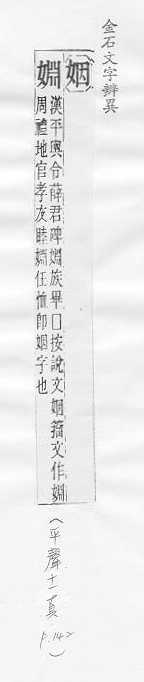 金石文字辨異
姻
婣
漢平輿令薛君碑婣族畢囗按說文姻籀文作婣
周禮地官孝友睦婣任恤即姻字也
(平聲十一真
p.142)